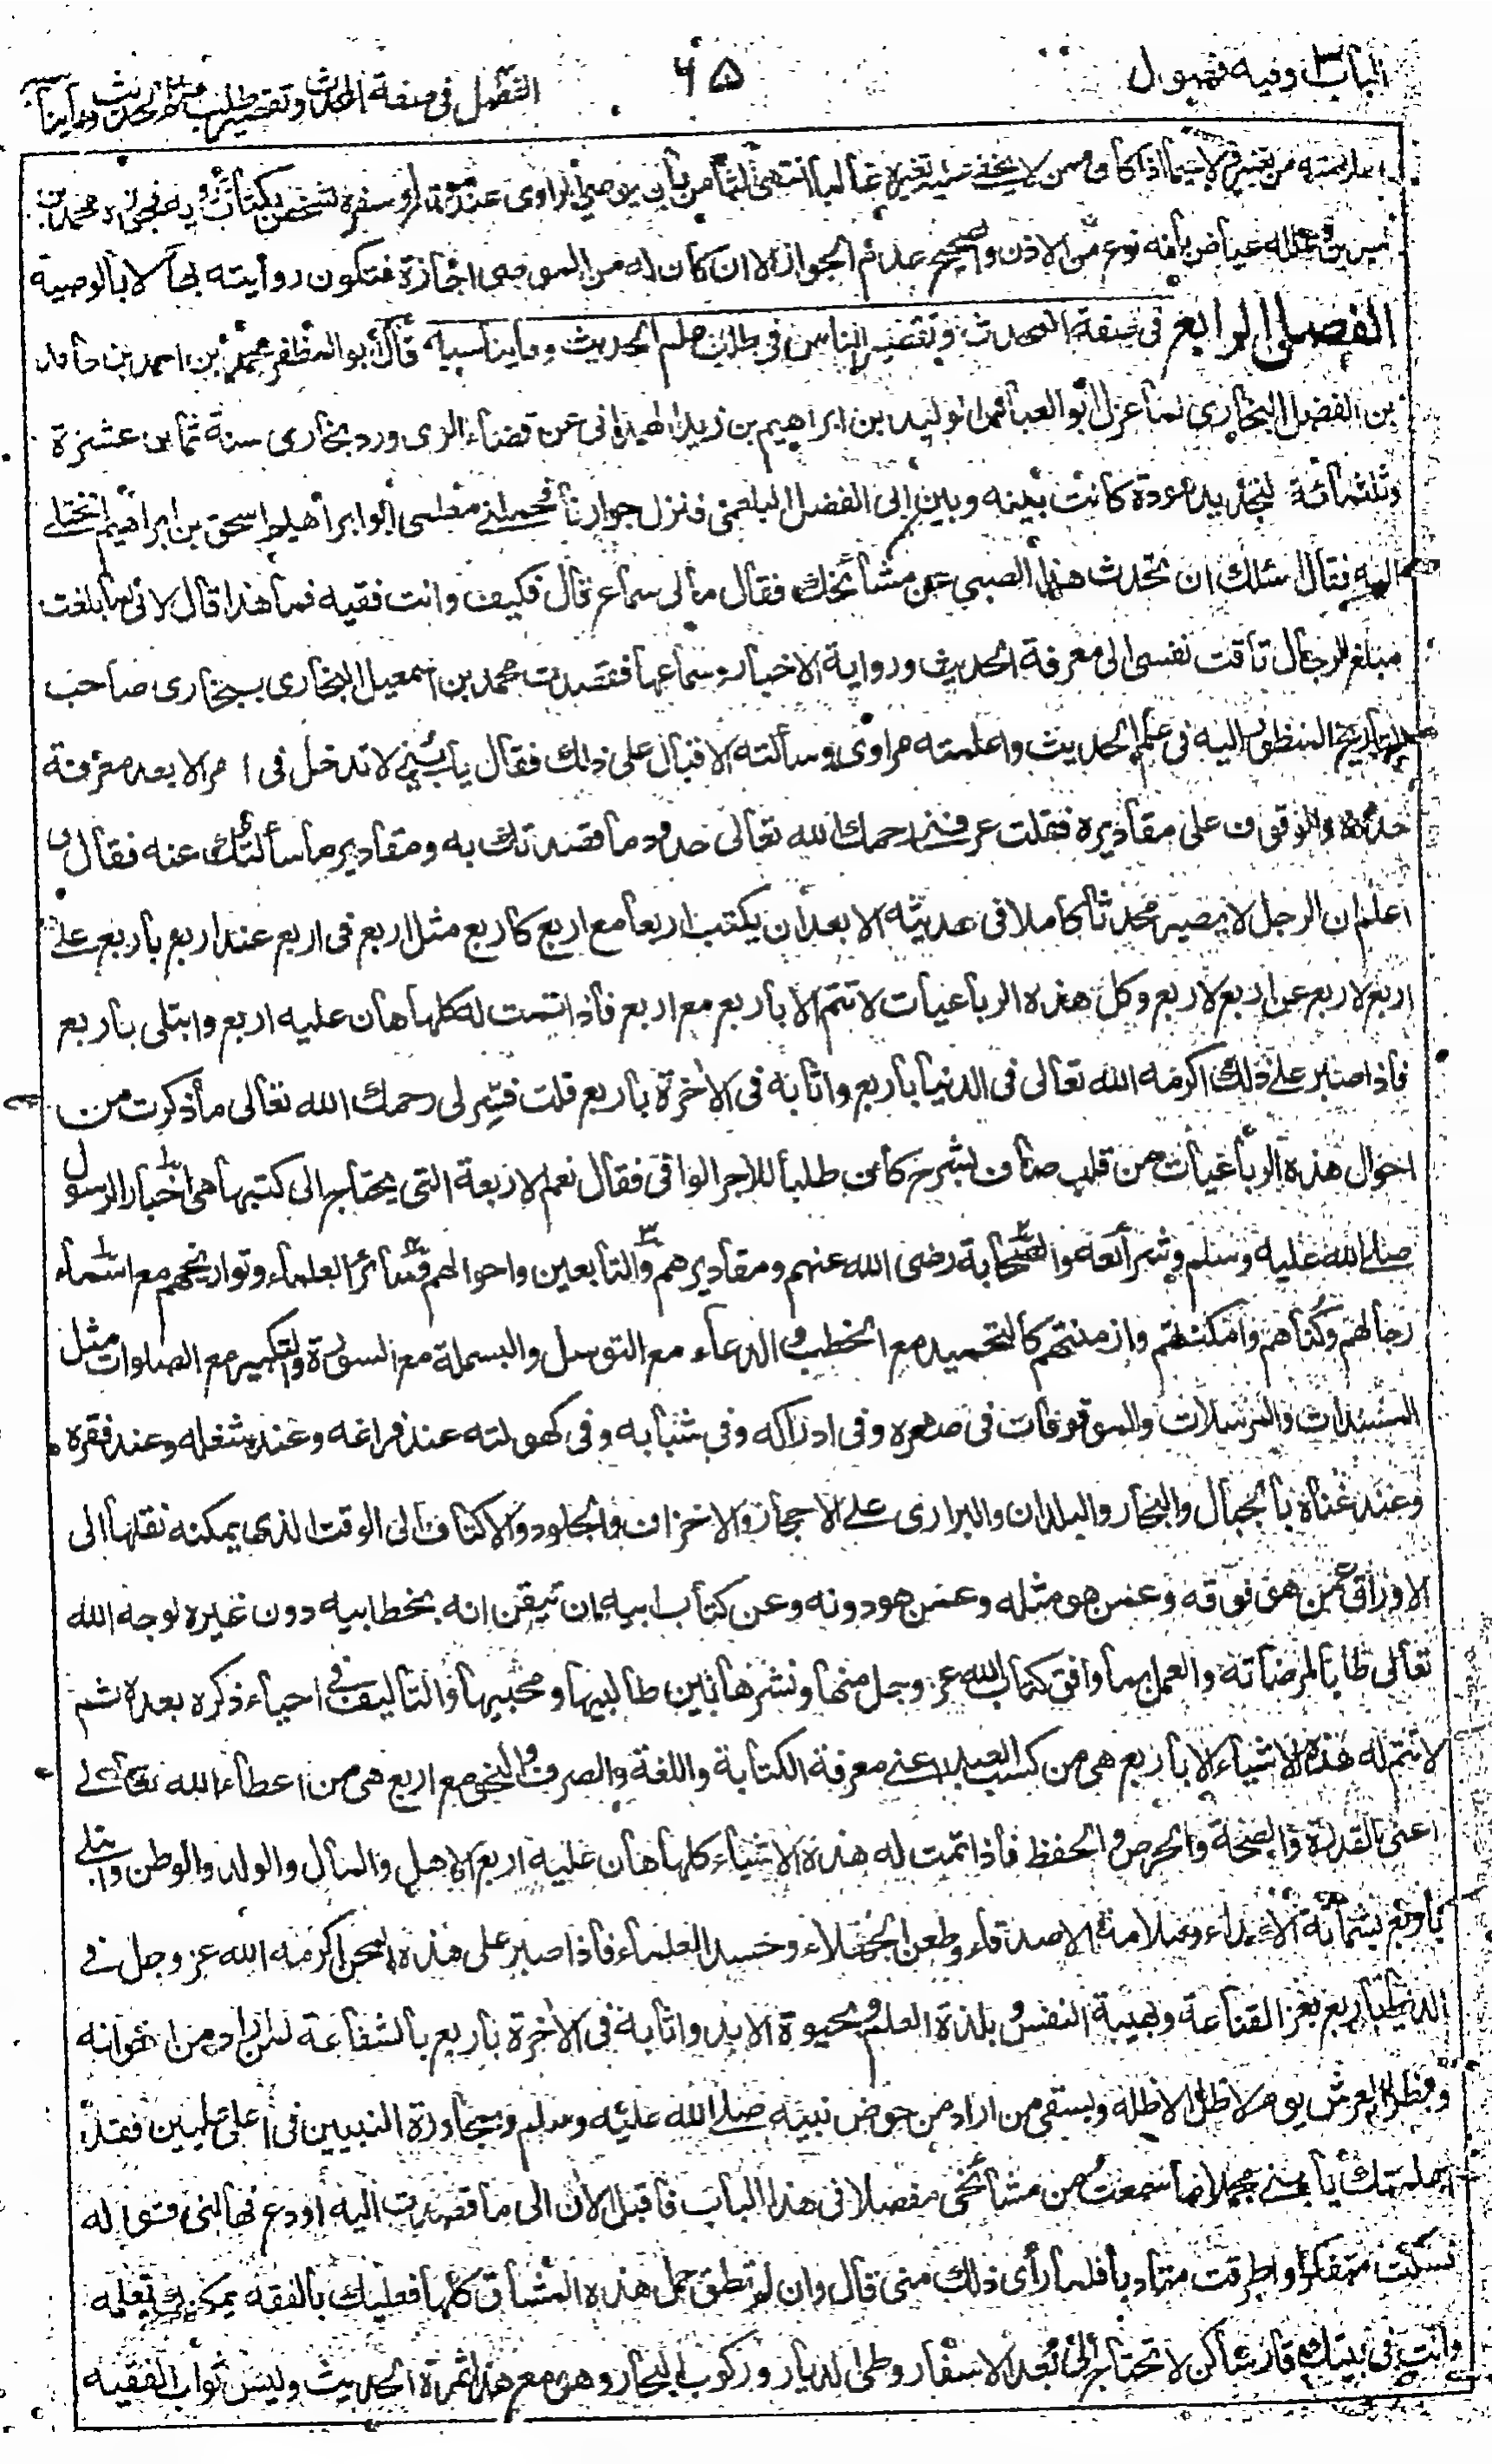 الباب ٣ وفيه فصول
٦٥
الفصل ٤ فى صفة المحدث وتقصير طلب علم الحديث وما يناسبه
من تغييره لاسيما اذا كان ممن لا يخفى عليه تغييره غالبا انتهى الثامن بأن يوصى الراوى عند موته او سفره لشخص بكتاب يرويه فجوزه محمد بن
سيرين وعلله عياض بأنه نوع من الاذن والصحيح عدم الجواز الا ان كان له من الموصى اجازة فتكون روايته بها لا بالوصية
الفصل الرابع فى صفة المحدث وتقصير الناس فى طلب علم الحديث وما يناسبه قال ابو المظفر محمد بن احمد بن حامد
بن الفضل البخارى لما عزل ابو العباس الوليد بن ابراهيم بن زيد الهمدانى عن قضاء الرى ورد بخارى سنة ثمان عشرة
وثلثمائة لتجديد مودة كانت بينه وبين ابى الفضل البلعمى فنزل جوارنا فحملنى معلمى ابو ابراهيم اسحق بن ابراهيم الختلى
اليه فقال سئلك ان تحدث هذا الصبى عن مشائخك فقال مالى سماع قال فكيف وانت فقيه فما هذا قال لانى لما بلغت
مبلغ الرجال تاقت نفسى الى معرفة الحديث ورواية الاخبار وسماعها فقصدت محمد بن اسمعيل البخارى ببخارى صاحب
التاريخ المنظور اليه فى علم الحديث واعلمته مرادى وسألته الاقبال على ذلك فقال يا بنى لا تدخل فى امر الا بعد معرفة
حدوده والوقوف على مقاديره فقلت عرفنى رحمك الله تعالى حدود ما قصدتك به ومقادير ما سألتك عنه فقال لى
اعلم ان الرجل لا يصير محدثا كاملا فى حديثه الا بعد ان يكتب اربعا مع اربع كاربع مثل اربع فى اربع عند اربع باربع على
اربع لاربع عن اربع لاربع وكل هذه الرباعيات لا تتم الا باربع مع اربع فاذا تمت له كلها هان عليه اربع وابتلى باربع
فاذا صبر على ذلك اكرمه الله تعالى فى الدنيا باربع واثابه فى الاخرة باربع قلت فسر لى رحمك الله تعالى ما ذكرت من
احوال هذه الرباعيات من قلب صاف بشرح كاف طلبا للاجر الوافى فقال نعم الاربعة التى يحتاج الى كتبها هى اخبار الرسول
صلى الله عليه وسلم وشرائعه والصحابة رضى الله عنهم ومقاديرهم والتابعين واحوالهم وسائر العلماء وتواريخهم مع اسماء
رجالهم وكناهم وامكنتهم وازمنتهم كالتحميد مع الخطب والدعاء مع التوسل والبسملة مع السورة والتكبير مع الصلوات مثل
المسندات والمرسلات والموقوفات فى صغره وفى ادراكه وفى شبابه وفى كهولته عند فراغه وعند شغله وعند فقره
وعند غناه بالجبال والبحار والبلدان والبرارى على الاحجار والاخزاف والجلود والاكتاف الى الوقت الذى يمكنه نقلها الى
الاوراق عمن هو فوقه وعمن هو مثله وعمن هو دونه وعن كتاب ابيه ان تيقن انه بخط ابيه دون غيره لوجه الله
تعالى طالبا لمرضاته والعمل بما وافق كتاب الله عز وجل منها ونشرها بين طالبيها ومحبيها والتاليف فى احياء ذكره بعده ثم
لا تتم له هذه الاشياء الا باربع هى من كسب العبد اعنى معرفة الكتابة واللغة والصرف والنحو مع اربع هى من اعطاء الله تعالى
اعنى القدرة والصحة والحرص والحفظ فاذا تمت له هذه الاشياء كلها هان عليه اربع الاهل والمال والولد والوطن وابتلى
باربع بشماتة الاعداء وملامة الاصدقاء وطعن الجهلاء وحسد العلماء فاذا صبر على هذه المحن اكرمه الله عز وجل فى
الدنيا باربع بعز القناعة وبهيبة النفس وبلذة العلم وبحيوة الابد واثابه فى الاخرة باربع بالشفاعة لمن اراد من اخوانه
وبظل العرش يوم لا ظل الا ظله وبسقى من اراد من حوض نبيه صلى الله عليه وسلم وبمجاورة النبيين فى اعلى عليين فقد
اعلمتك يا بنى مجملا ما سمعت من مشائخى مفصلا فى هذا الباب فاقبل الان الى ما قصدت اليه او دع فهالنى قوله
فسكت متفكرا واطرقت متادبا فلما رأى ذلك منى قال وان لم تطق حمل هذه المشاق كلها فعليك بالفقه يمكنك تعلمه
وانت فى بيتك قار ساكن لا تحتاج الى بعد الاسفار وطى الديار وركوب البحار وهو مع هذا ثمرة الحديث وليس ثواب الفقيه